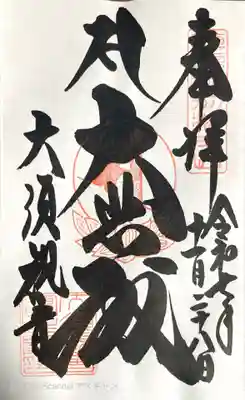 奉拝
令和七年
十一月二十八日
大悲殿
大須観音